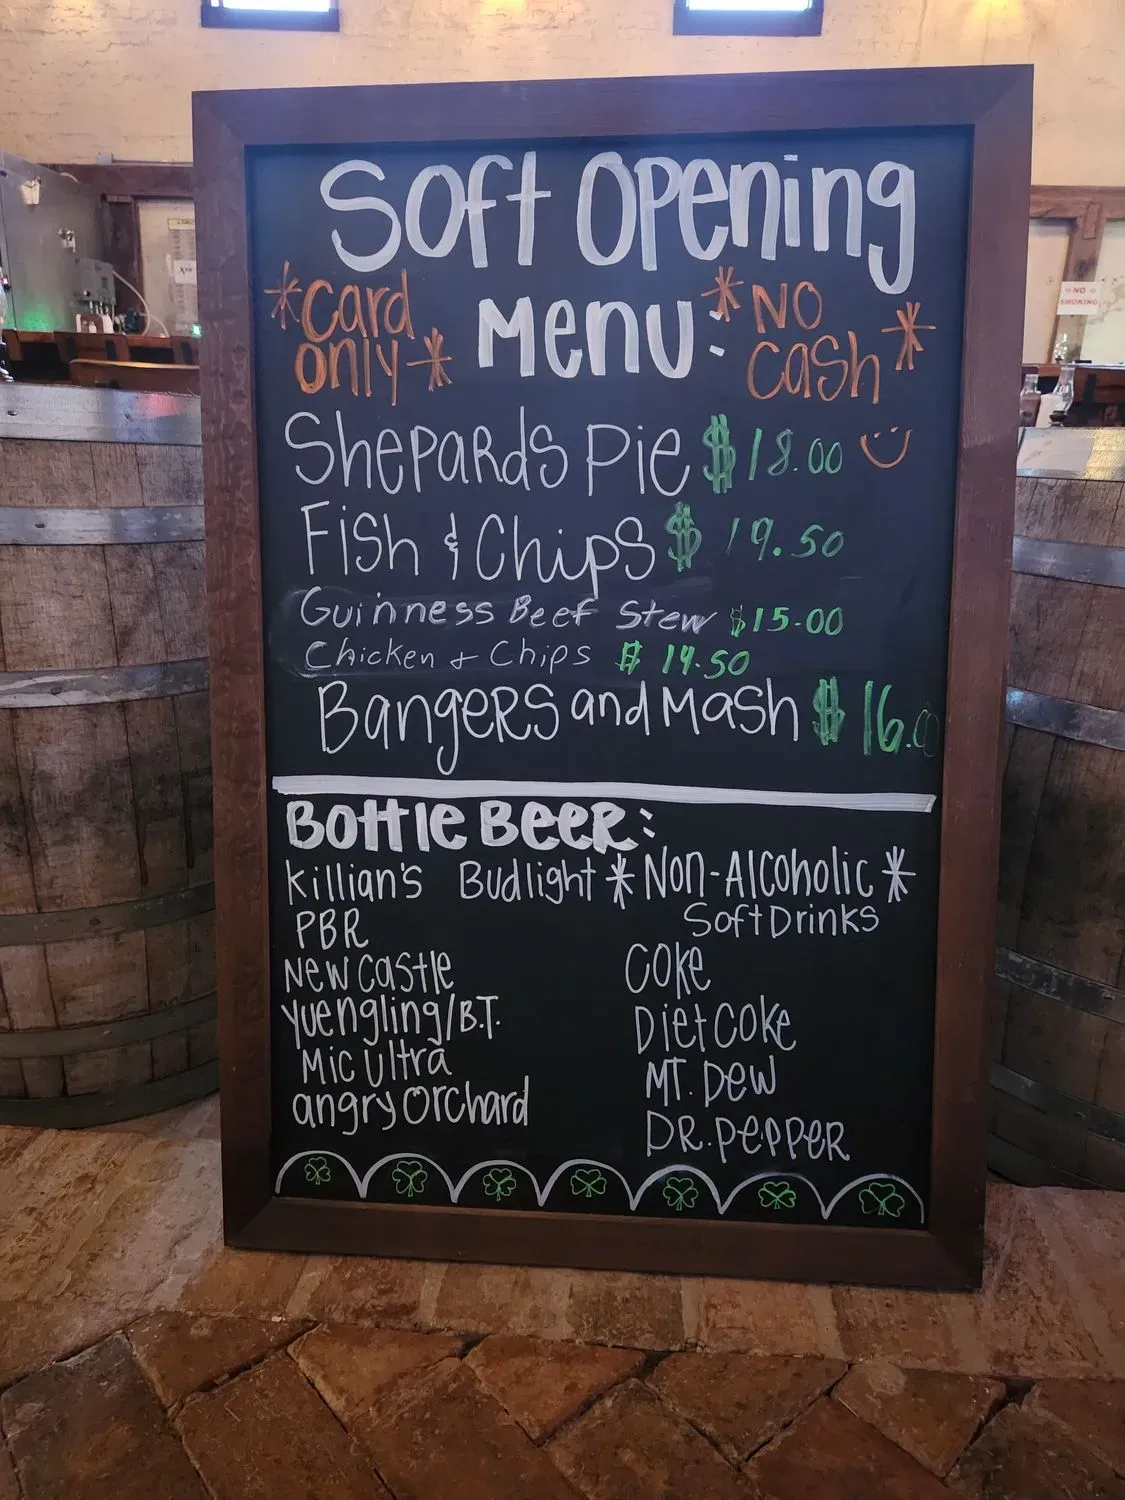 Soft Opening
*Card only*
Menu:
*No Cash*
Shepards Pie $18.00
Fish & Chips $19.50
Guinness Beef Stew $15.00
Chicken & Chips $14.50
Bangers and Mash $16.00
Bottle Beer:
Killian's Budlight
PBR
New Castle
Yuengling/B.T.
Mic Ultra
angry Orchard
*Non-Alcoholic*
Soft Drinks
Coke
Diet Coke
MT. Dew
DR. Pepper
NO
SMOKING